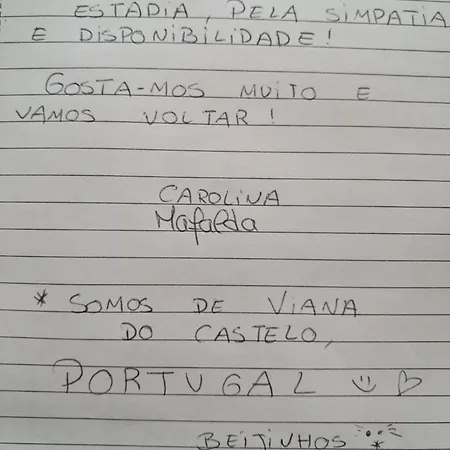 ESTADIA, PELA SIMPATIA
E DISPONIBILIDADE!
GOSTA-MOS MUITO E
VAMOS VOLTAR!
CAROLINA
Mafalda
* SOMOS DE VIANA
DO CASTELO,
PORTUGAL
BEIJINHOS